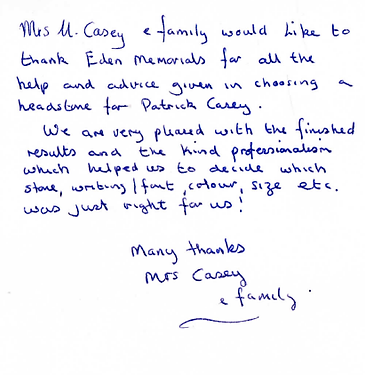 Mrs M. Casey & family would like to
thank Eden Memorials for all the
help and advice given in choosing a
headstone for Patrick Casey.
We are very pleased with the finished
results and the kind professionalism
which helped us to decide which
stone, writing/font, colour, size etc.
was just right for us!
Many thanks
Mrs Casey
& family.